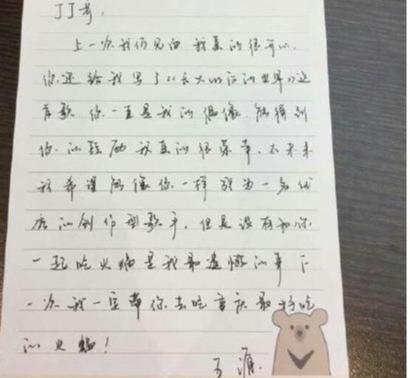 JJ哥，
上一次我们见面 我真的很开心，
你还给我写了《长大以后的世界》这
首歌 你一直是我的偶像 能得到
你的鼓励我真的很荣幸，在未来
我希望能像你一样成为一名优
秀的创作型歌手，但是没有和你
一起吃火锅是我最遗憾的事 下
一次我一定带你去吃重庆最好吃
的火锅！
王源